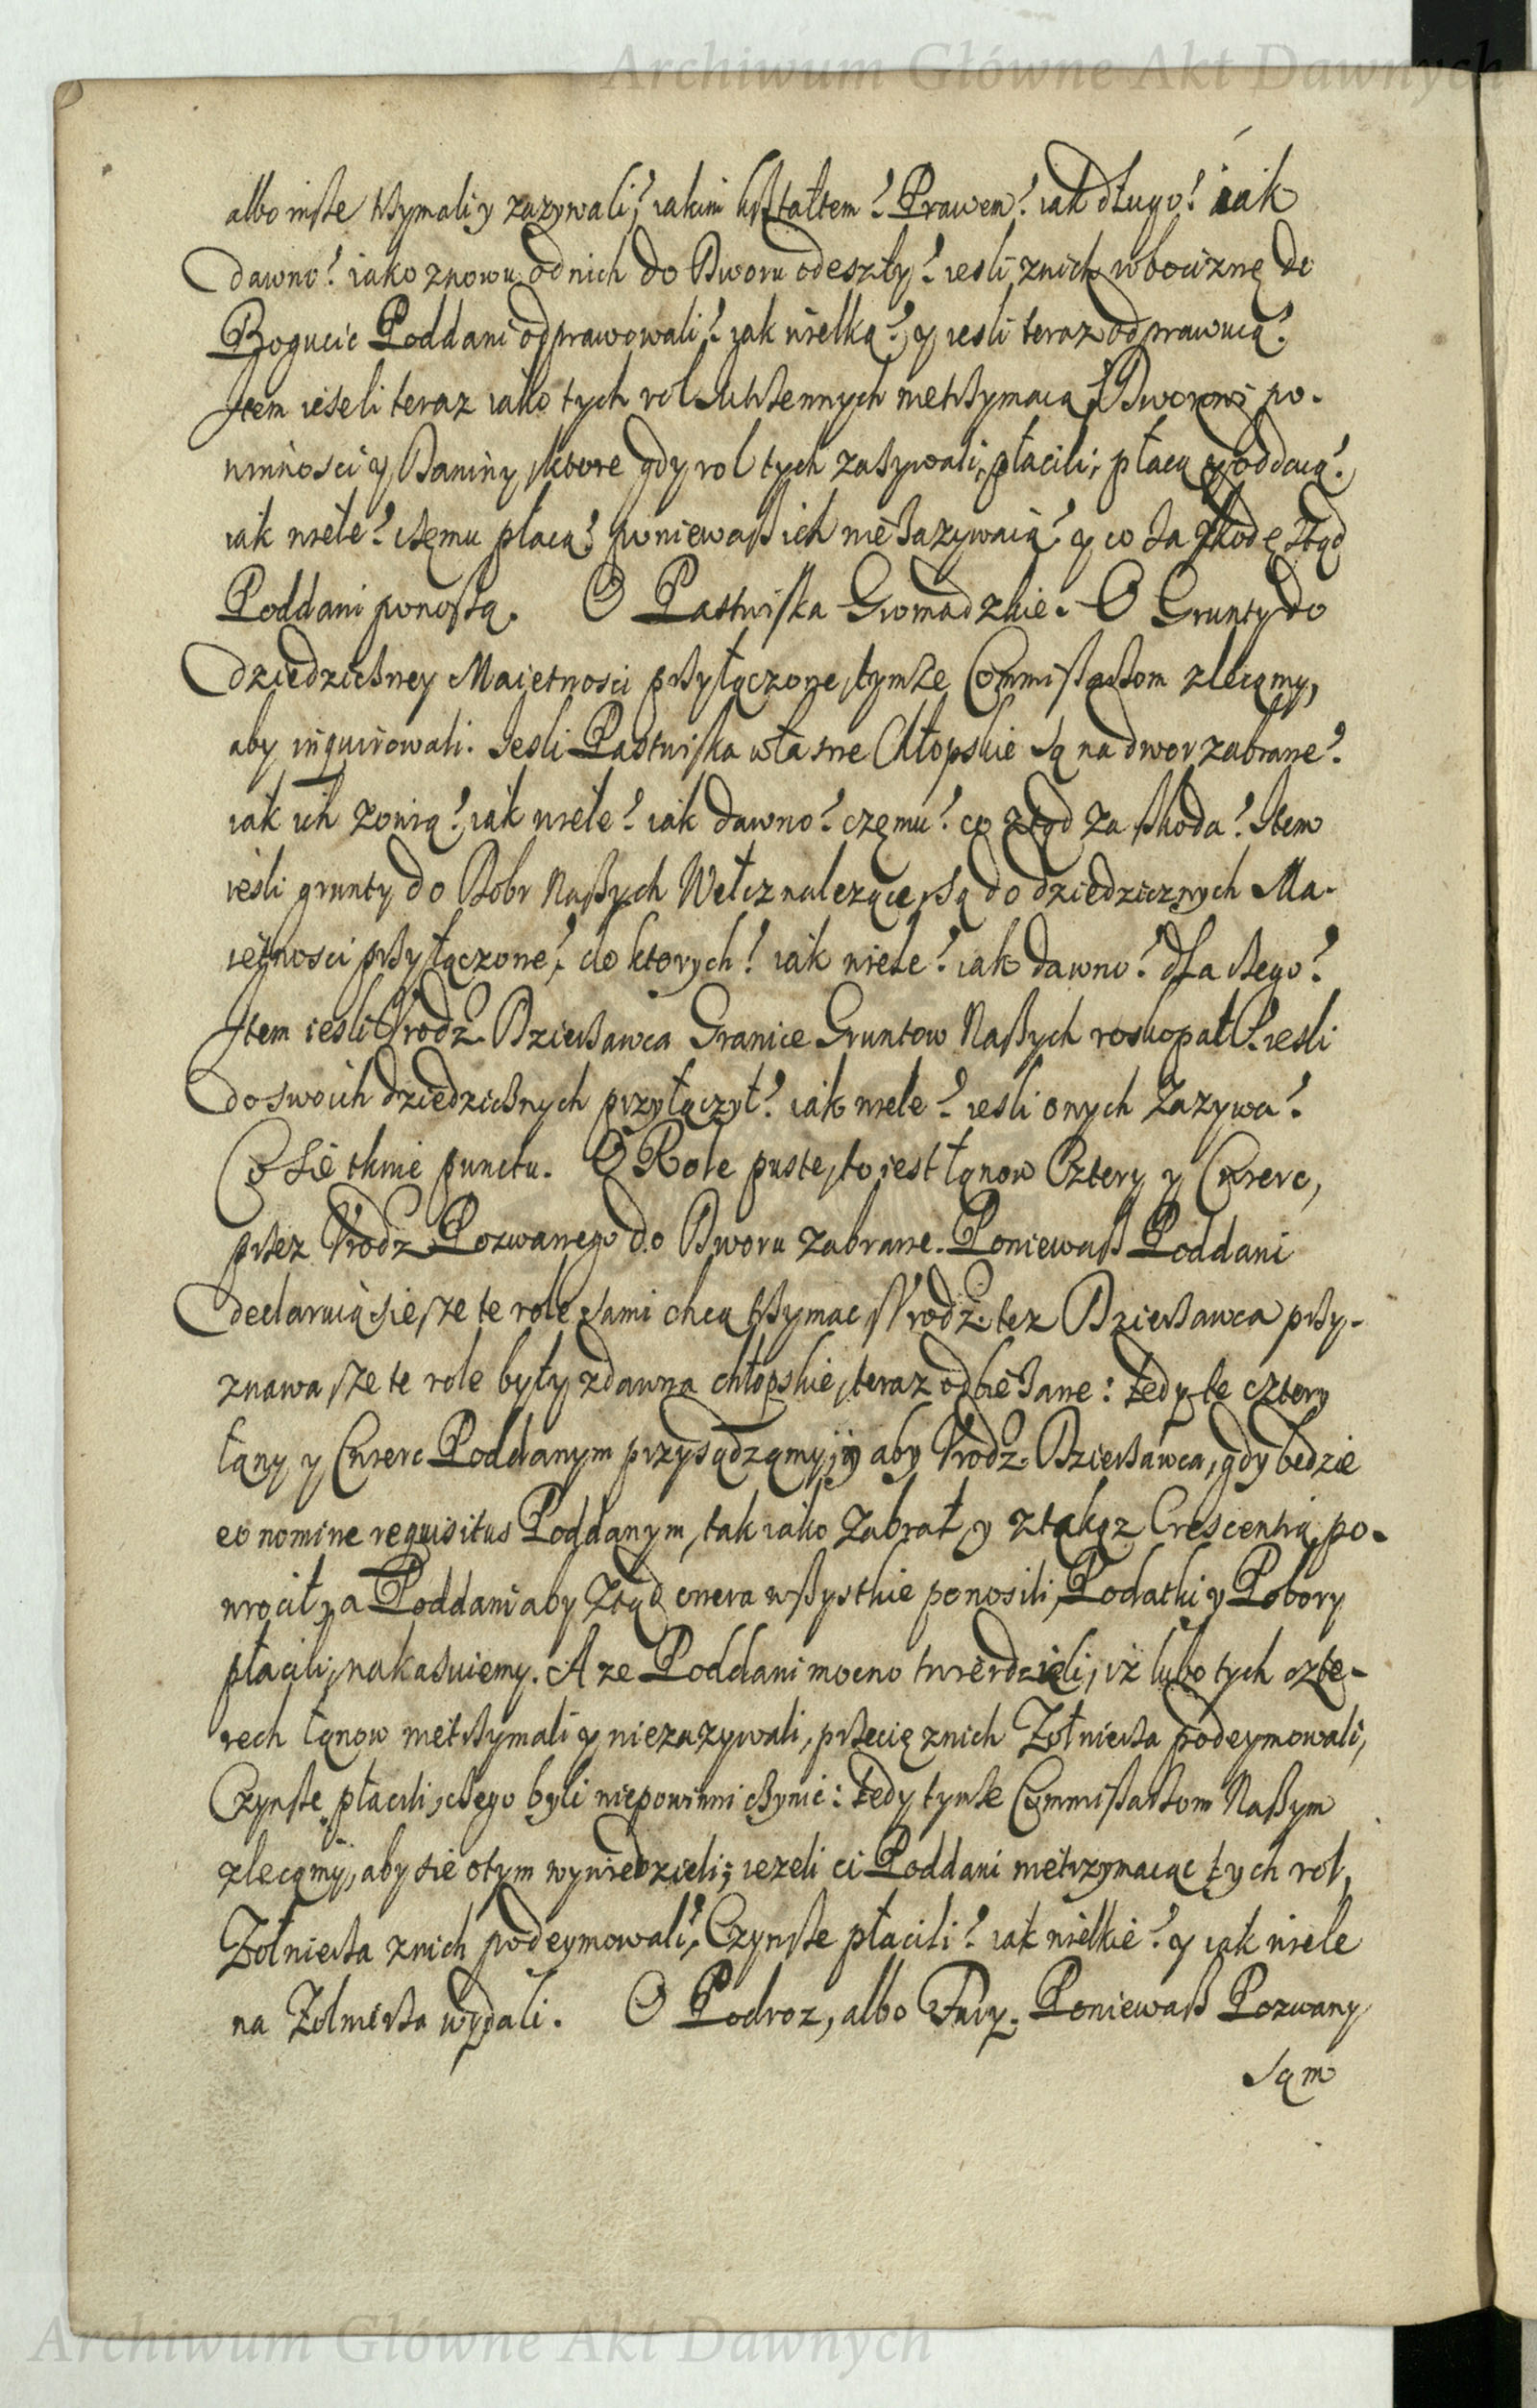 Archiwum Główne Akt Dawnych
albo insze trzymali y zazywali? iakim kształtem? Prawem? iak długo? iak
dawno? iako znowu od nich do Dworu odeszły? iesli znich robociznę do
Bogucic Poddani odprawowali? iak wielką? y iesli teraz odprawuią?
Item ieżeli teraz iako tych rol nietrzymaią Dworowi po-
winnosci y Daniny, ktore gdy rol tych zażywali, płacili, płacą y oddaią?
iak wiele? czemu płacą? ponieważ ich nie zazywaią? y co za szkodę ztąd
Poddani ponoszą. O Pastwiska Gromadzkie. O Grunty do
dziedziczney Maiętnosci przyłączone, tymże Commissarzom zlecamy,
aby inquirowali. Iesli Pastwiska własne Chłopskie są na dwor zabrane?
iak ich zowią? iak wiele? iak dawno? czemu? co ztąd za szkoda? Item
iesli grunty do Dobr Naszych Wełcz nalezące, są do dziedzicznych Ma-
iętnosci przyłączone? do ktorych? iak wiele? iak dawno? dla czego?
Item iesli Vrodz. Dzierżawca Granice Gruntow Naszych roskopał? iesli
do swoich dziedzicznych przyłączył? iak wiele? iesli onych zazywa?
Co się tknie punctu. O Role puste, to iest łanow Cztery y Cwierc,
przez Vrodz. Pozwanego do Dworu zabrane. Ponieważ Poddani
declaruią się, ze te role sami chcą trzymac, Vrodz. tez Dzierżawca przy-
znawa, ze te role były zdawna chłopskie, teraz odbieżane: tedy te cztery
łany y Cwierc Poddanym przysądzamy; y aby Vrodz. Dzierżawca, gdy będzie
eo nomine requisitus Poddanym, tak iako zabrał, y ztakąz Crescentią po-
wrocił, a Poddani aby ztąd onera wszystkie ponosili, Podatki y Pobory
płacili, nakazuiemy. A ze Poddani mocno twierdzieli, iż lubo tych czte-
rech łanow nietrzymali y niezazywali, przecię znich Zołnierza podeymowali,
Czynsze płacili, czego byli niepowinni czynić: tedy tymże Commissarzom Naszym
zlecamy, aby sie otym wywiedzieli; iezeli ci Poddani nietrzymaiąc tych rol,
Zołnierza znich podeymowali? Czynsze płacili? iak wielkie? y iak wiele
na Zołnierza wydali. O Podroz, albo Fury. Ponieważ Pozwany
sam
Archiwum Główne Akt Dawnych